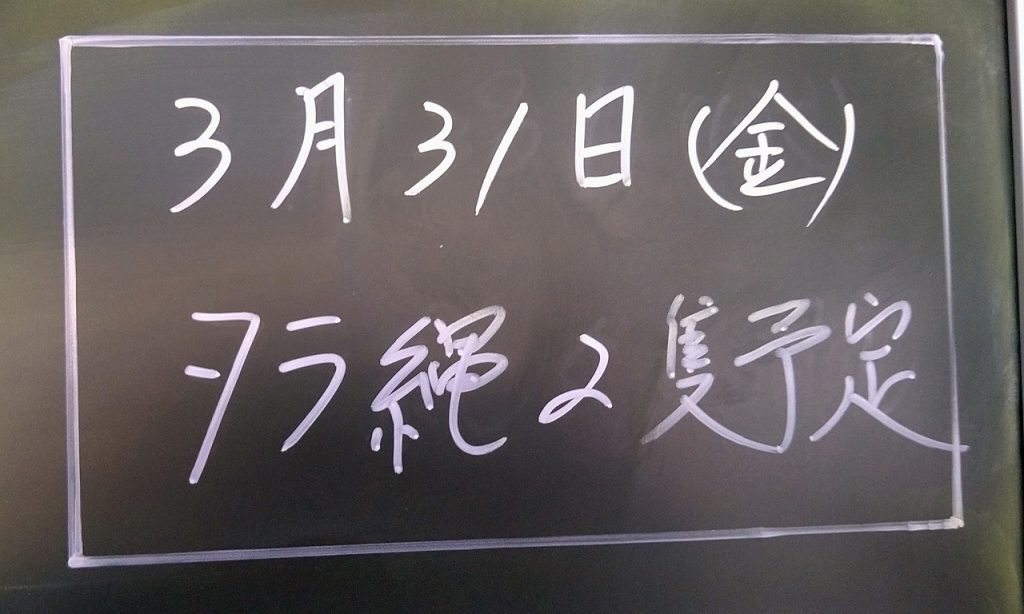 3月31日(金)
タラ縄2隻予定